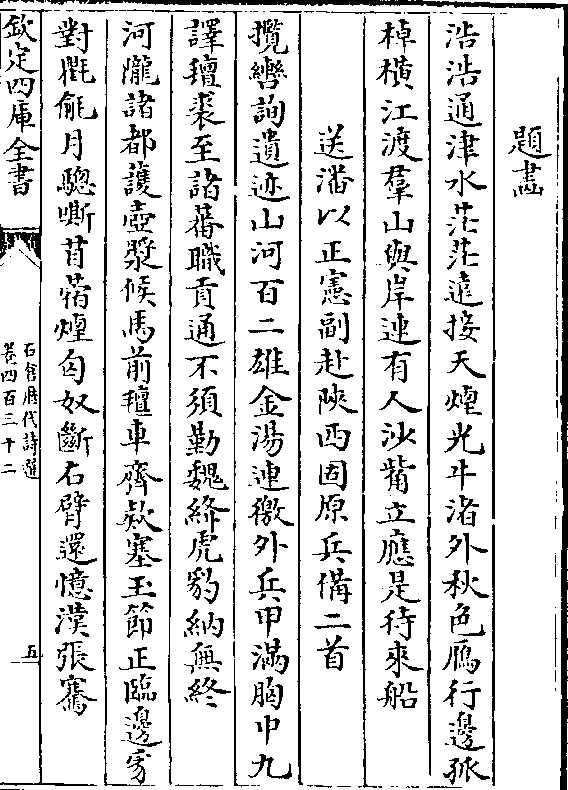 題畫
浩浩通津水茫茫遠接天煙光牛渚外秋色鴈行邊孤
棹橫江渡羣山與岸連有人沙觜立應是待來船
送潘以正憲副赴陜西固原兵備二首
攬轡詢遺迹山河百二雄金湯連徼外兵甲滿胸中九
譯氊裘至諸蕃職貢通不須勤魏絳虎豹納無終
河隴諸都護壺漿候馬前氊車齊欵塞玉節正臨邊劵
對氍毹月驄嘶苜蓿煙匈奴斷右臂還憶漢張騫
欽定四庫全書
石倉歷代詩選
卷四百三十二
五